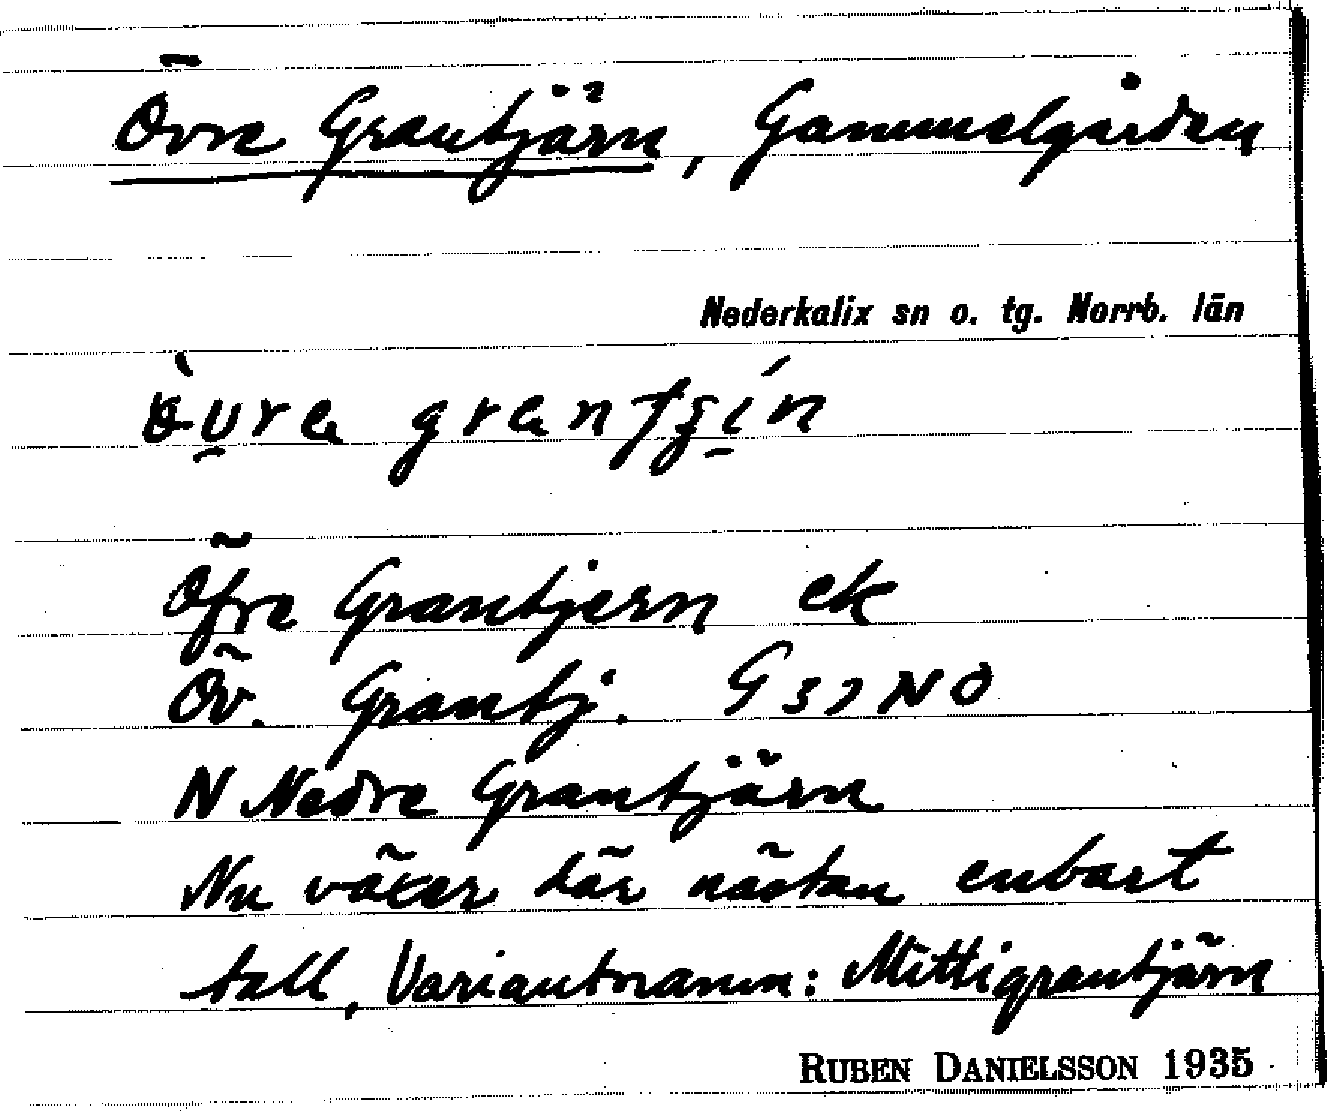 Övre Grantjärn, Gammelgården
Nederkalix sn o. tg. Norrb. län
Öfre Grantjern ek
Öv. Grantj. G 32 NO
N Nedre Grantjärn
Nu växer där nästan enbart
tall, Variantnamn: Mittigrantjärn
RUBEN DANIELSSON 1935